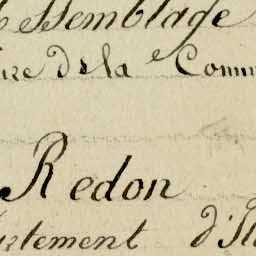 ssemblage
ire de la Comm
Redon
artement d'Il